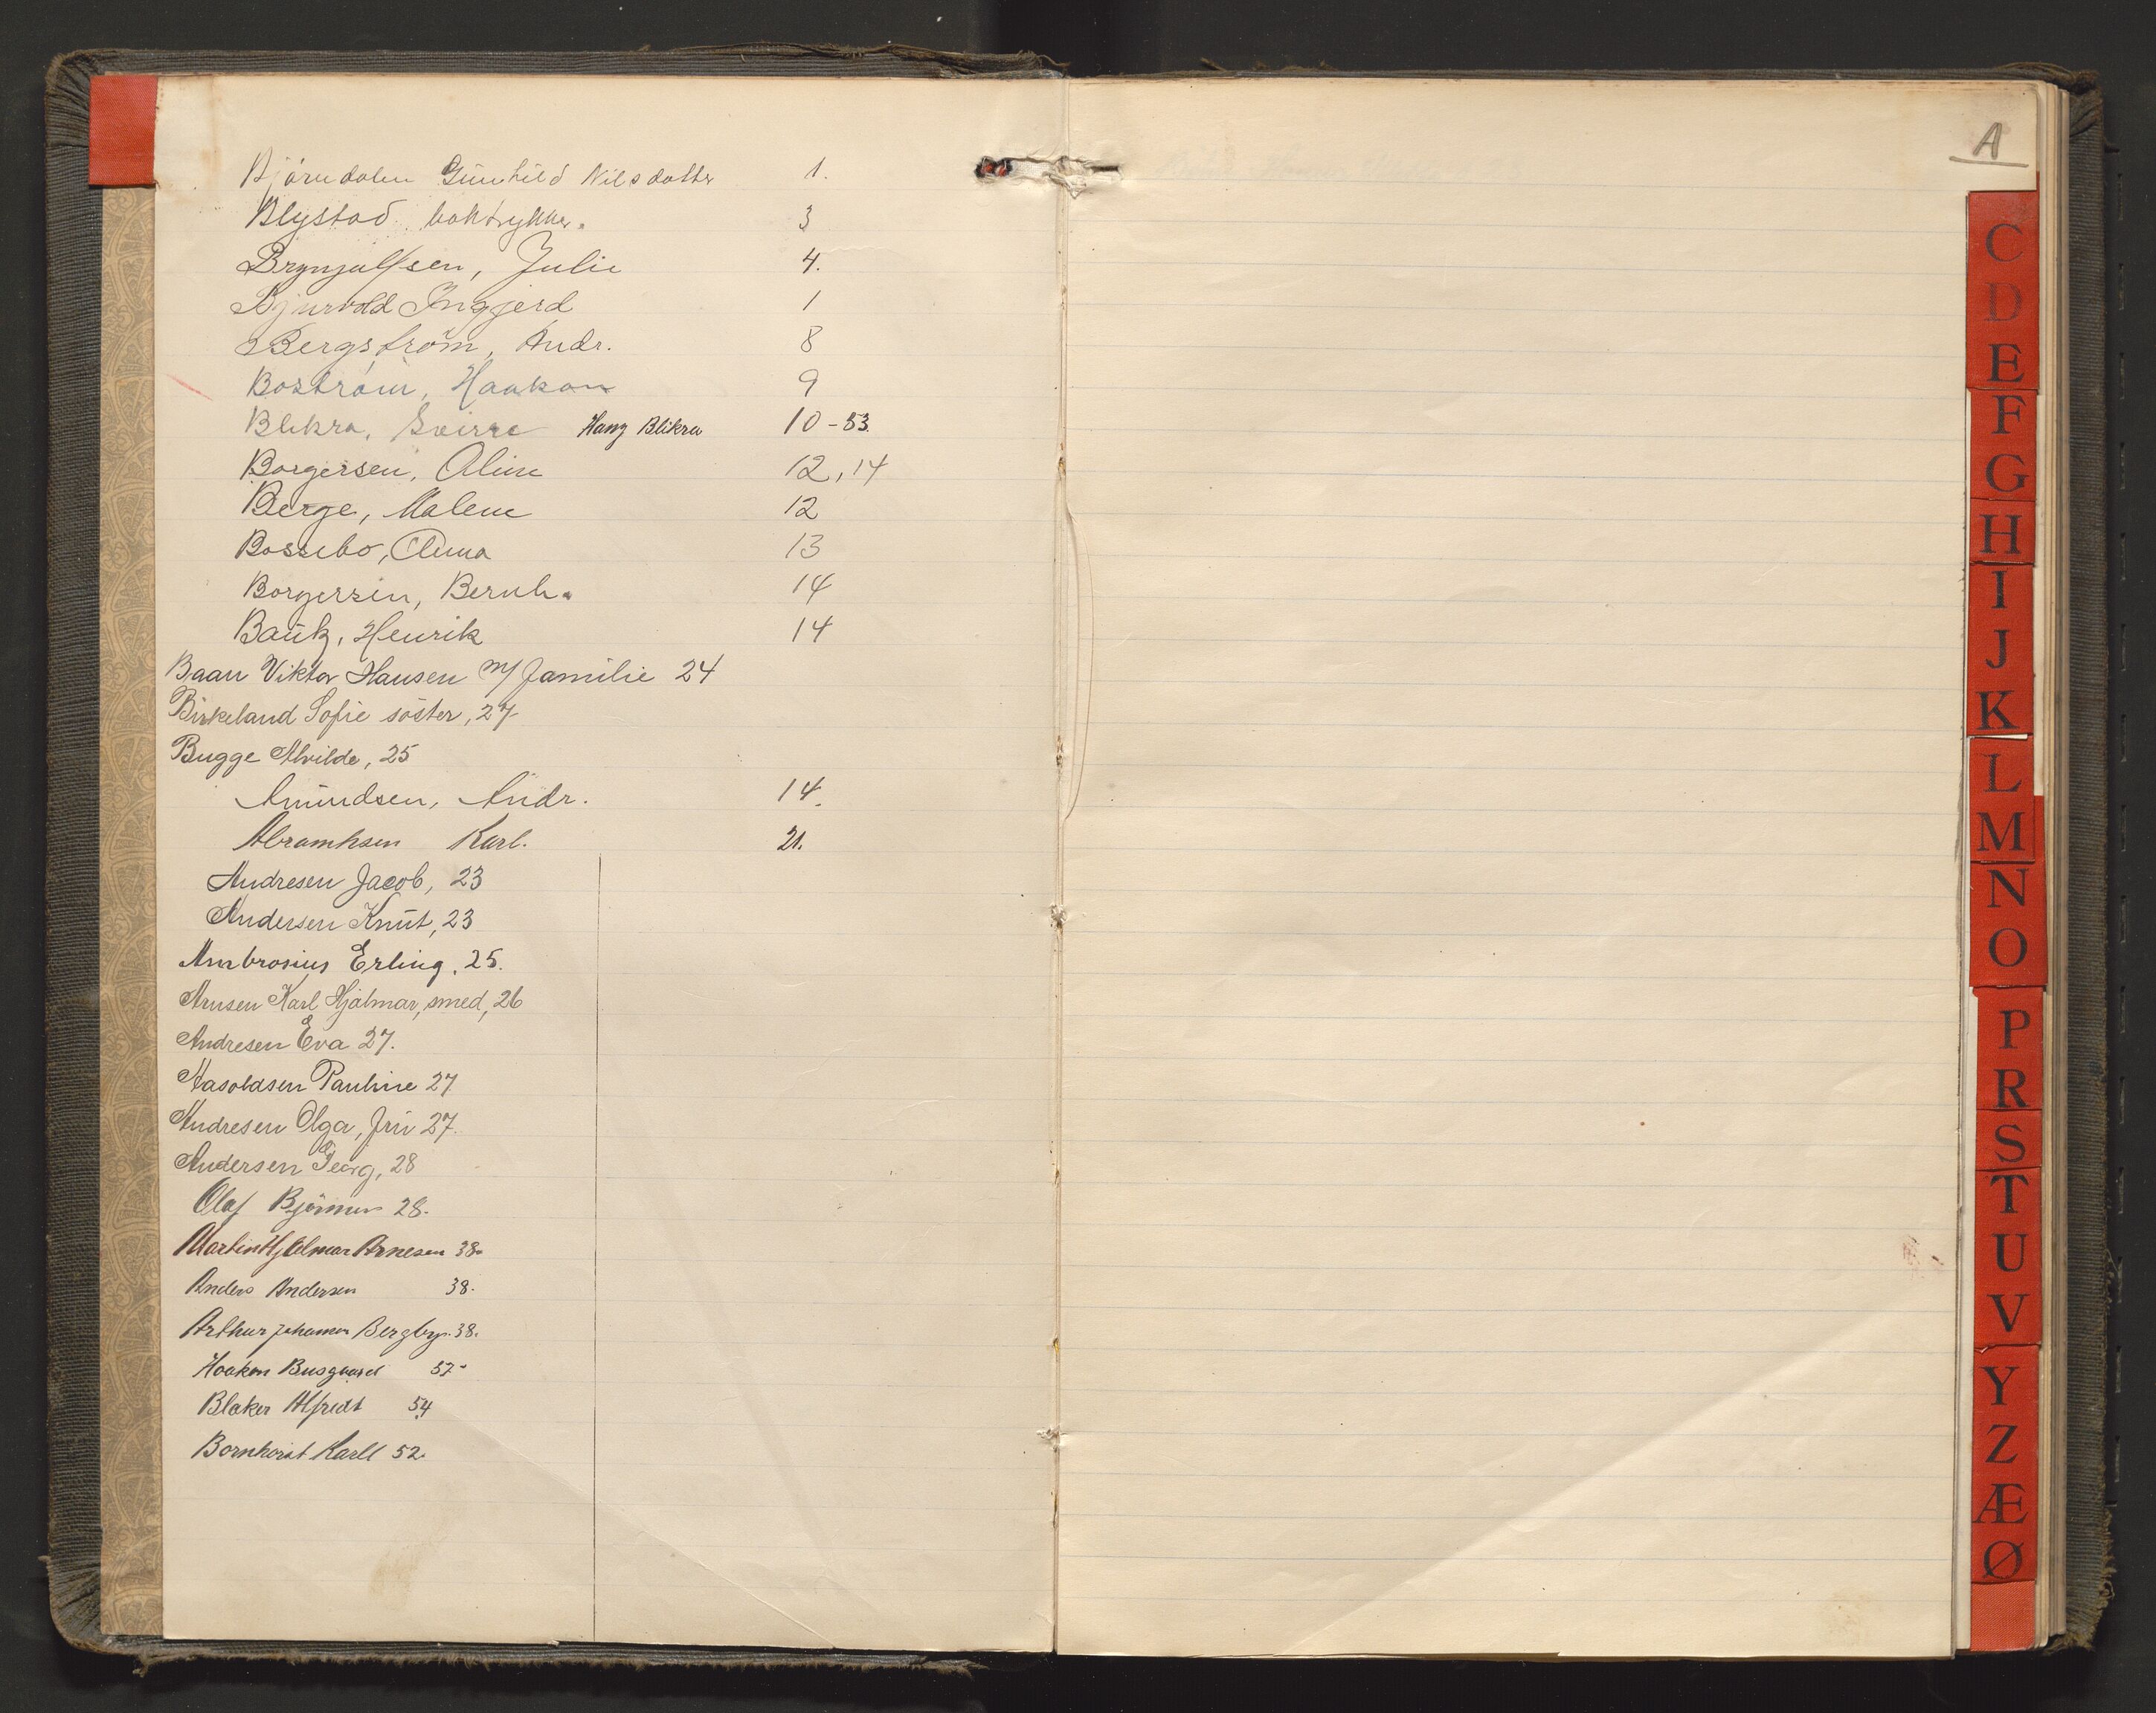 Björndalen Gunhild Nilsdatter 1.
Blystad boktrykker. 3
Brynjulfsen, Julie 4.
Bjurvold Ingjerd 1
Bergström, Andr. 8
Boström, Haakon 9
Blikra, Sverre Hans Blikra 10-53.
Borgersen, Aline 12, 14
Berge, Malene 12
Bossebo, Anna 13
Borgersen, Bernh. 14
Bautz, Henrik 14
Baan Viktor Hansen m/ familie 24
Birkeland Sofie söster, 27
Bugge Alvilde, 25
Amundsen, Andr. 14.
Abramhsen Karl. 21.
Andresen Jacob, 23
Andersen Knut, 23
Ambrosius Erling, 25.
Arnsen Karl Hjalmar, smed, 26
Andresen Eva 27.
Aasoldsen Pauline 27
Andresen Olga, fru 27.
Andersen Georg, 28
Olaf 28.
Martin Hjalmar Arnesen 38.
Anders Andersen 38.
Arthur Johannes Bergbye. 38.
Haakon Busgaard 57-
Blaker Alfredt 54
Bornhorst Karll 52.
A
C
D
E
F
G
H
I
J
K
L
M
N
O
P
R
S
T
U
V
Y
Z
Æ
Ø